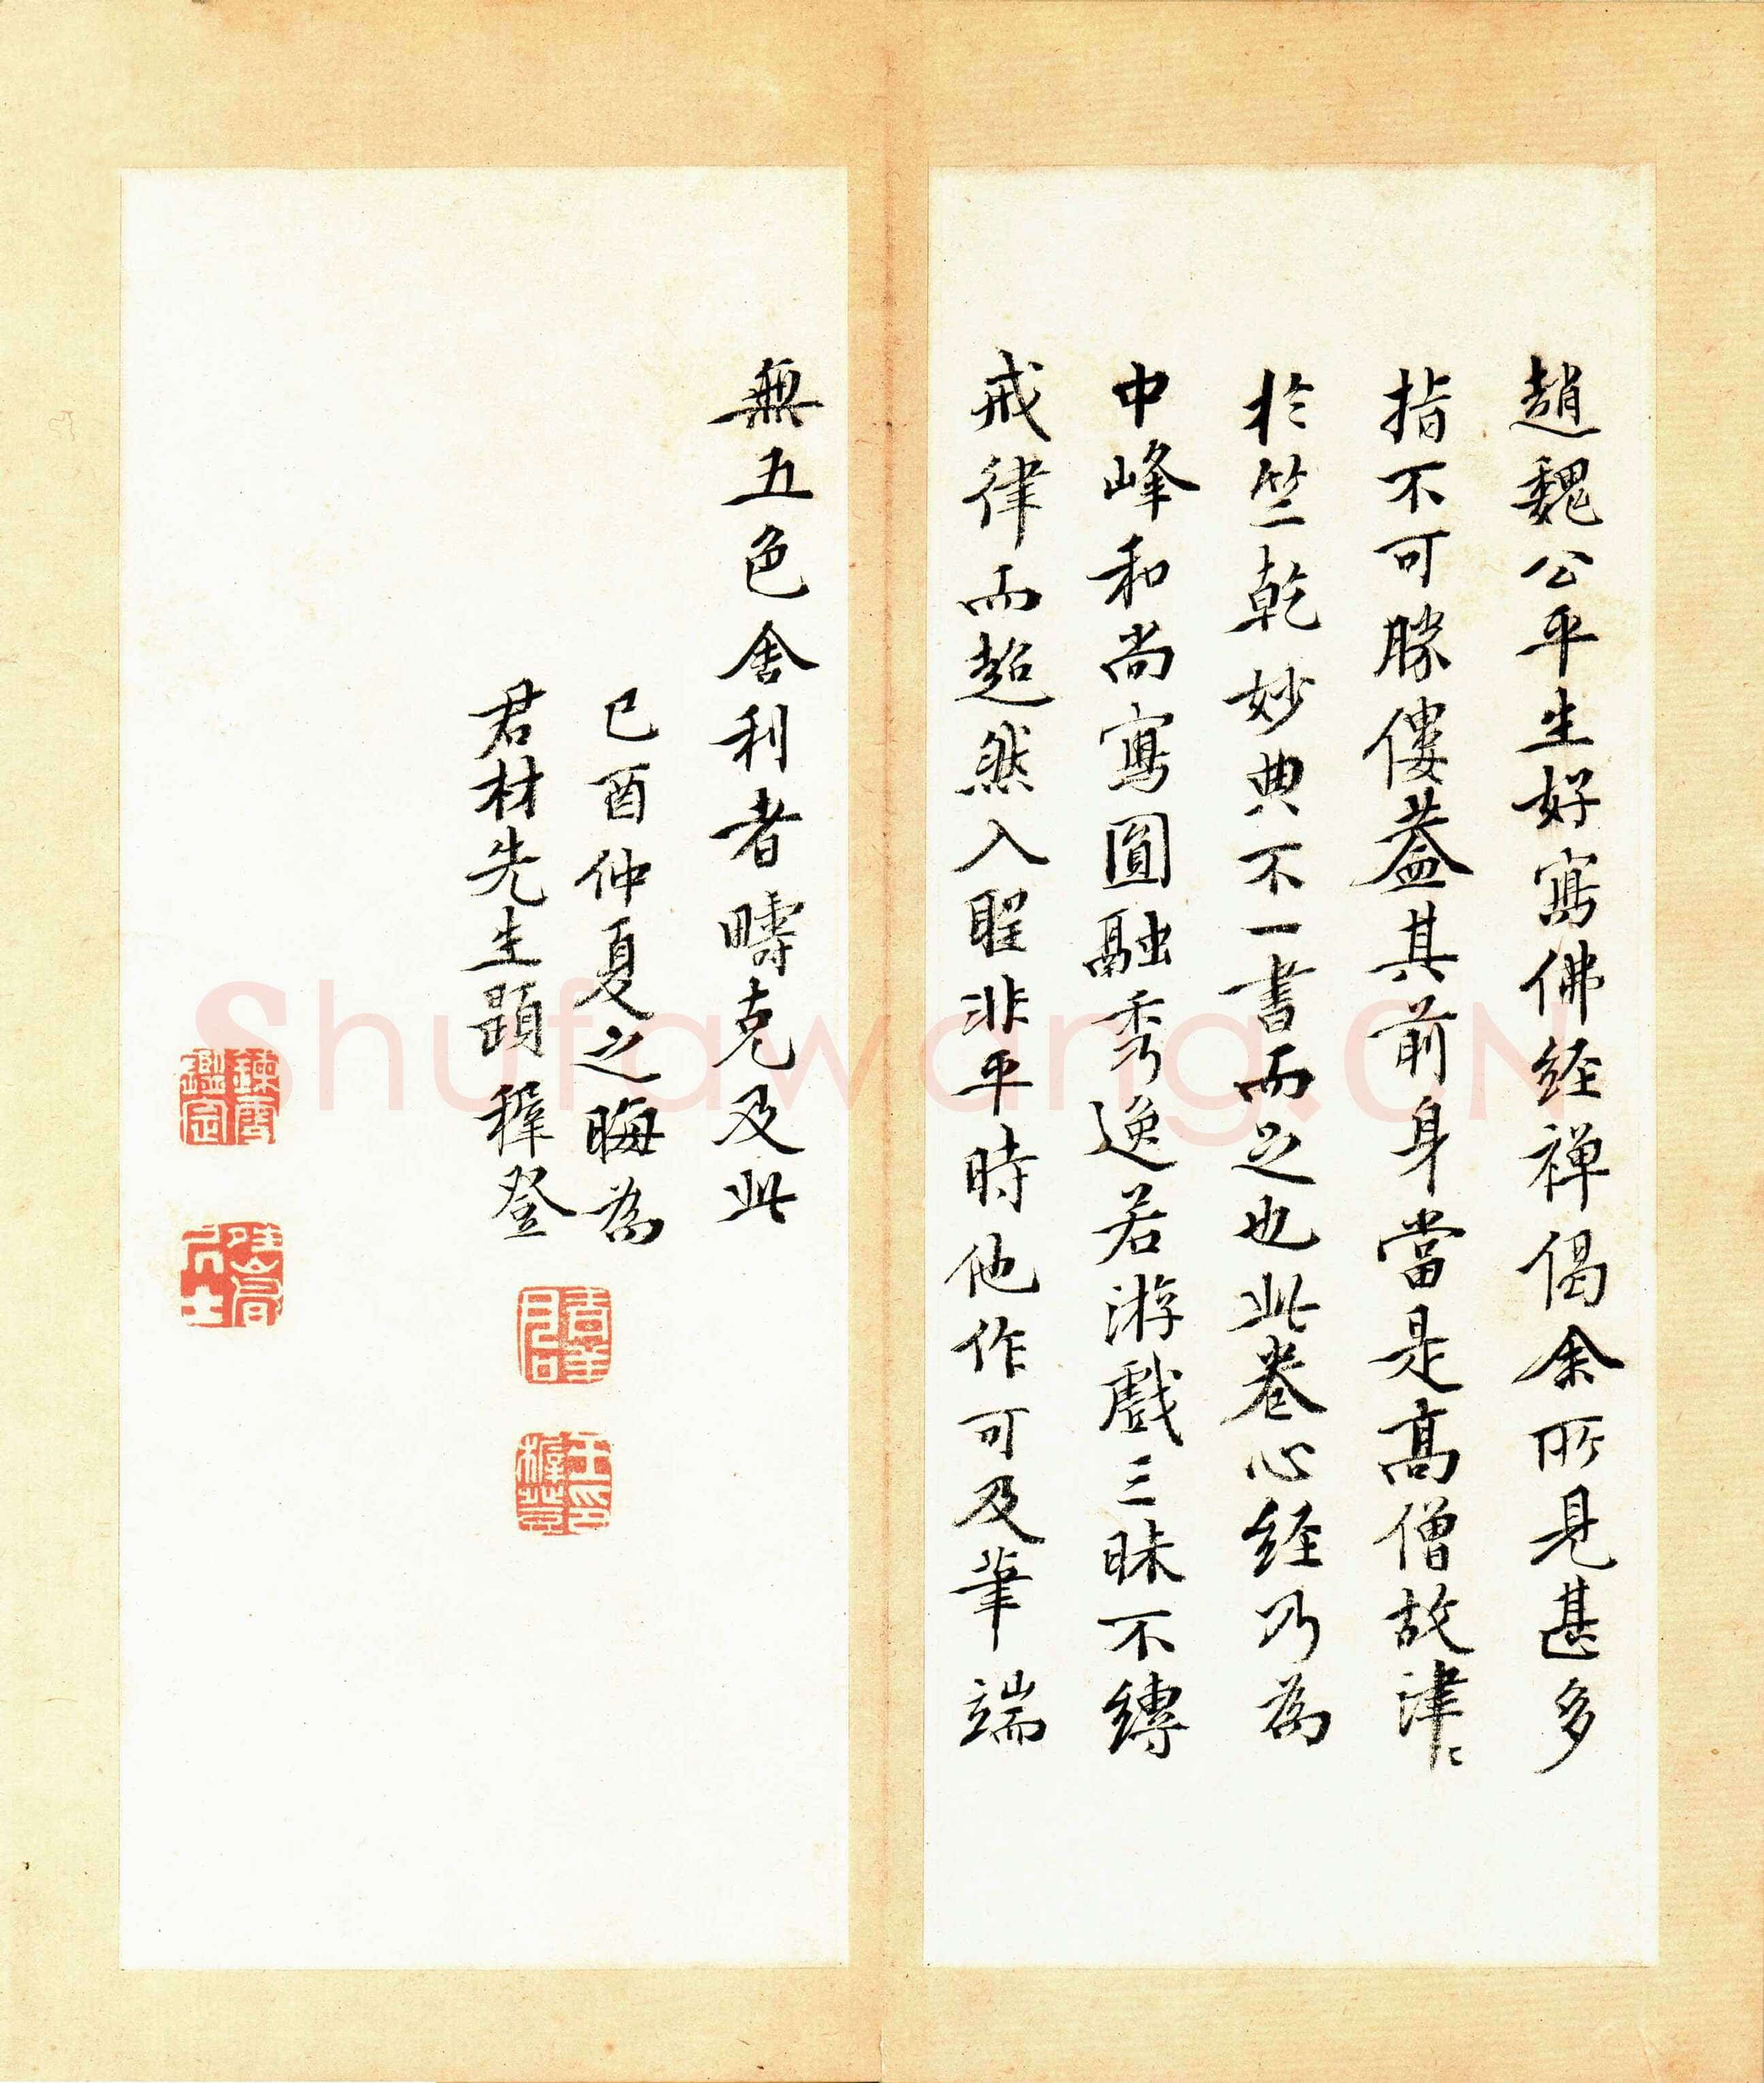 趙魏公平生好寫佛经禅偈余所見甚多
指不可勝僂葢其前身當是髙僧故津〻
於竺乾妙典不一書而足也此卷心经乃為
中峰和尚寫圓融秀逸若游戲三昧不縛
戒律而超然入聖非平時他作可及筆端
無五色舍利者疇克及此
己酉仲夏之晦為
君材先生題穉登
王印穉登
Shufawang.CN